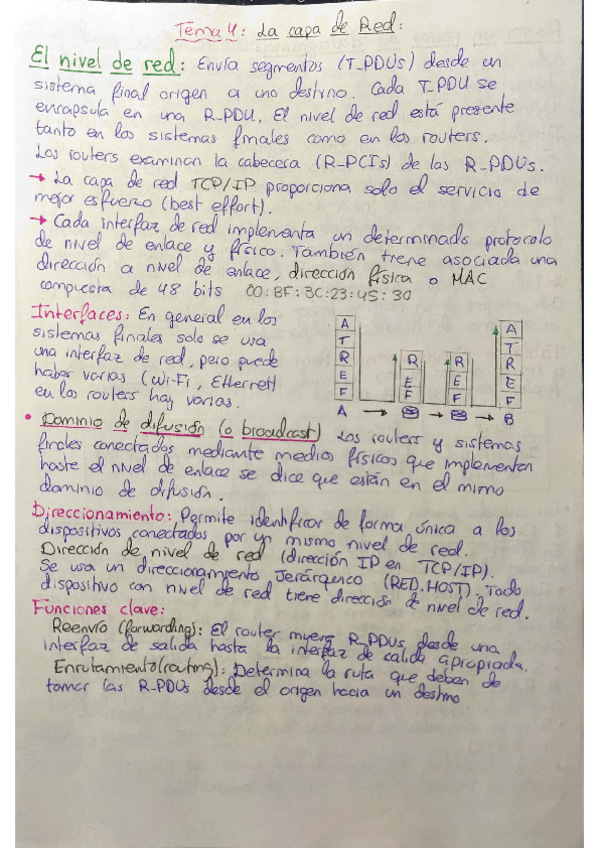 Tema 4: La capa de Red:
El nivel de red: Envía segmentos (T_PDUs) desde un
sistema final origen a uno destino. Cada T_PDU se
encapsula en una R_PDU. El nivel de red está presente
tanto en los sistemas finales como en los routers.
Los routers examinan la cabecera (R-PCIs) de las R_PDUs.
→ La capa de red TCP/IP proporciona solo el servicio de
mejor esfuerzo (best effort).
→ Cada interfaz de red implementa un determinado protocolo
de nivel de enlace y físico. También tiene asociada una
dirección a nivel de enlace, dirección física o MAC
compuesta de 48 bits 00:BF:3C:23:45:30
Interfaces: En general en los
sistemas finales solo se usa
una interfaz de red, pero puede
haber varias (Wi-Fi, Ethernet)
en los routers hay varias.
A
T
R
E
F
A
R
E
F
R
E
F
A
T
R
E
F
B
• Dominio de difusión (o broadcast) Los routers y sistemas
finales conectados mediante medios físicos que implementen
hasta el nivel de enlace se dice que están en el mismo
dominio de difusión.
Direccionamiento: Permite identificar de forma única a los
dispositivos conectados por un mismo nivel de red.
Dirección de nivel de red (dirección IP en TCP/IP).
Se usa un direccionamiento Jerárquico (RED.HOST). Todo
dispositivo con nivel de red tiene dirección de nivel de red.
Funciones clave:
Reenvío (forwarding): El router mueve R_PDUs desde una
interfaz de salida hasta la interfaz de calida apropiada.
Enrutamiento (routing): Determina la ruta que deben de
tomar las R-PDUs desde el origen hacia un destino